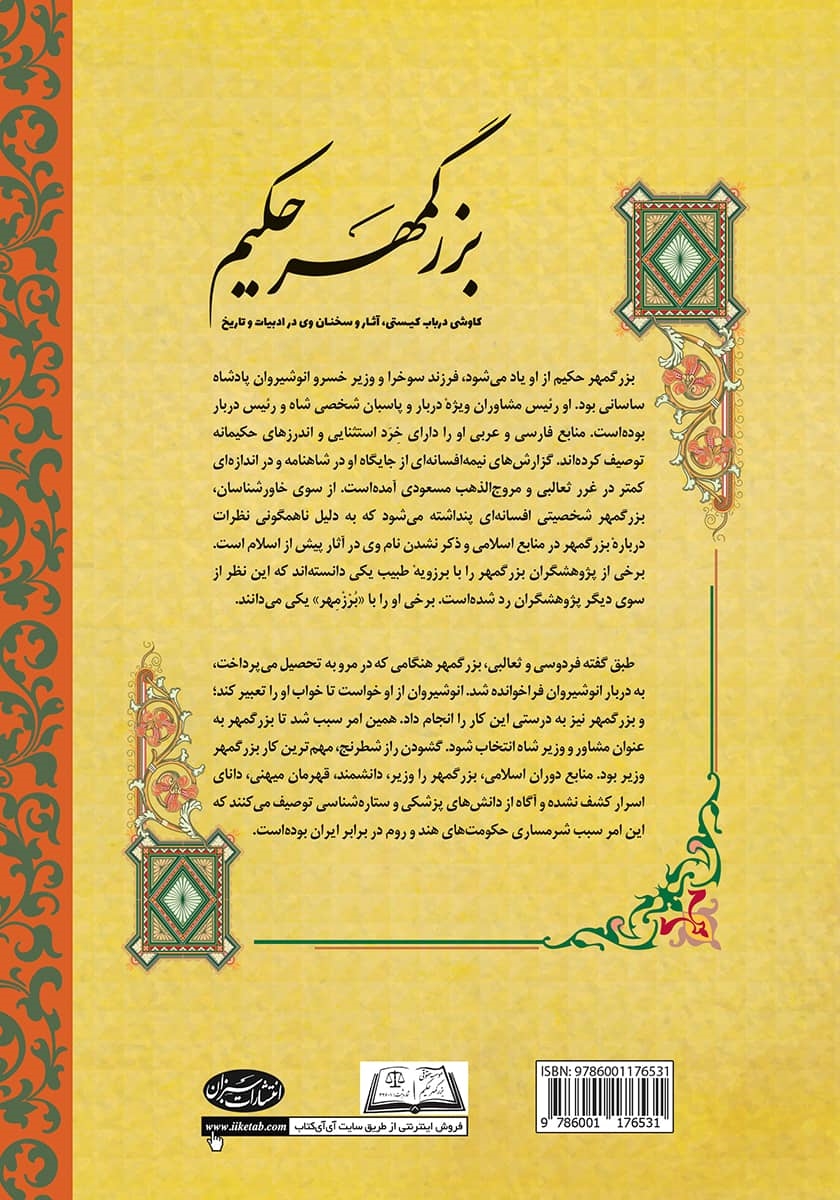 بزرگمهر حکیم
کاوشی درباب کیستی، آثار و سخنان وی در ادبیات و تاریخ
بزرگمهر حکیم از او یاد می‌شود، فرزند سوخرا و وزیر خسرو انوشیروان پادشاه
ساسانی بود. او رئیس مشاوران ویژهٔ دربار و پاسبان شخصی شاه و رئیس دربار
بوده‌است. منابع فارسی و عربی او را دارای خِرَد استثنایی و اندرزهای حکیمانه
توصیف کرده‌اند. گزارش‌های نیمه‌افسانه‌ای از جایگاه او در شاهنامه و در اندازه‌ای
کمتر در غرر ثعالبی و مروج‌الذهب مسعودی آمده‌است. از سوی خاورشناسان،
بزرگمهر شخصیتی افسانه‌ای پنداشته می‌شود که به دلیل ناهمگونی نظرات
دربارهٔ بزرگمهر در منابع اسلامی و ذکر نشدن نام وی در آثار پیش از اسلام است.
برخی از پژوهشگران بزرگمهر را با برزویهٔ طبیب یکی دانسته‌اند که این نظر از
سوی دیگر پژوهشگران رد شده‌است. برخی او را با «بُرْزْمِهر» یکی می‌دانند.
طبق گفته فردوسی و ثعالبی، بزرگمهر هنگامی که در مرو به تحصیل می‌پرداخت،
به دربار انوشیروان فراخوانده شد. انوشیروان از او خواست تا خواب او را تعبیر کند؛
و بزرگمهر نیز به درستی این کار را انجام داد. همین امر سبب شد تا بزرگمهر به
عنوان مشاور و وزیر شاه انتخاب شود. گشودن راز شطرنج، مهم‌ترین کار بزرگمهر
وزیر بود. منابع دوران اسلامی، بزرگمهر را وزیر، دانشمند، قهرمان میهنی، دانای
اسرار کشف نشده و آگاه از دانش‌های پزشکی و ستاره‌شناسی توصیف می‌کنند که
این امر سبب شرمساری حکومت‌های هند و روم در برابر ایران بوده‌است.
ISBN: 9786001176531
9 786001 176531
موسسه حقوقی
بزرگمهر حکیم
انتشارات سبزان
فروش اینترنتی از طریق سایت آی‌آی‌کتاب
www.iiketab.com